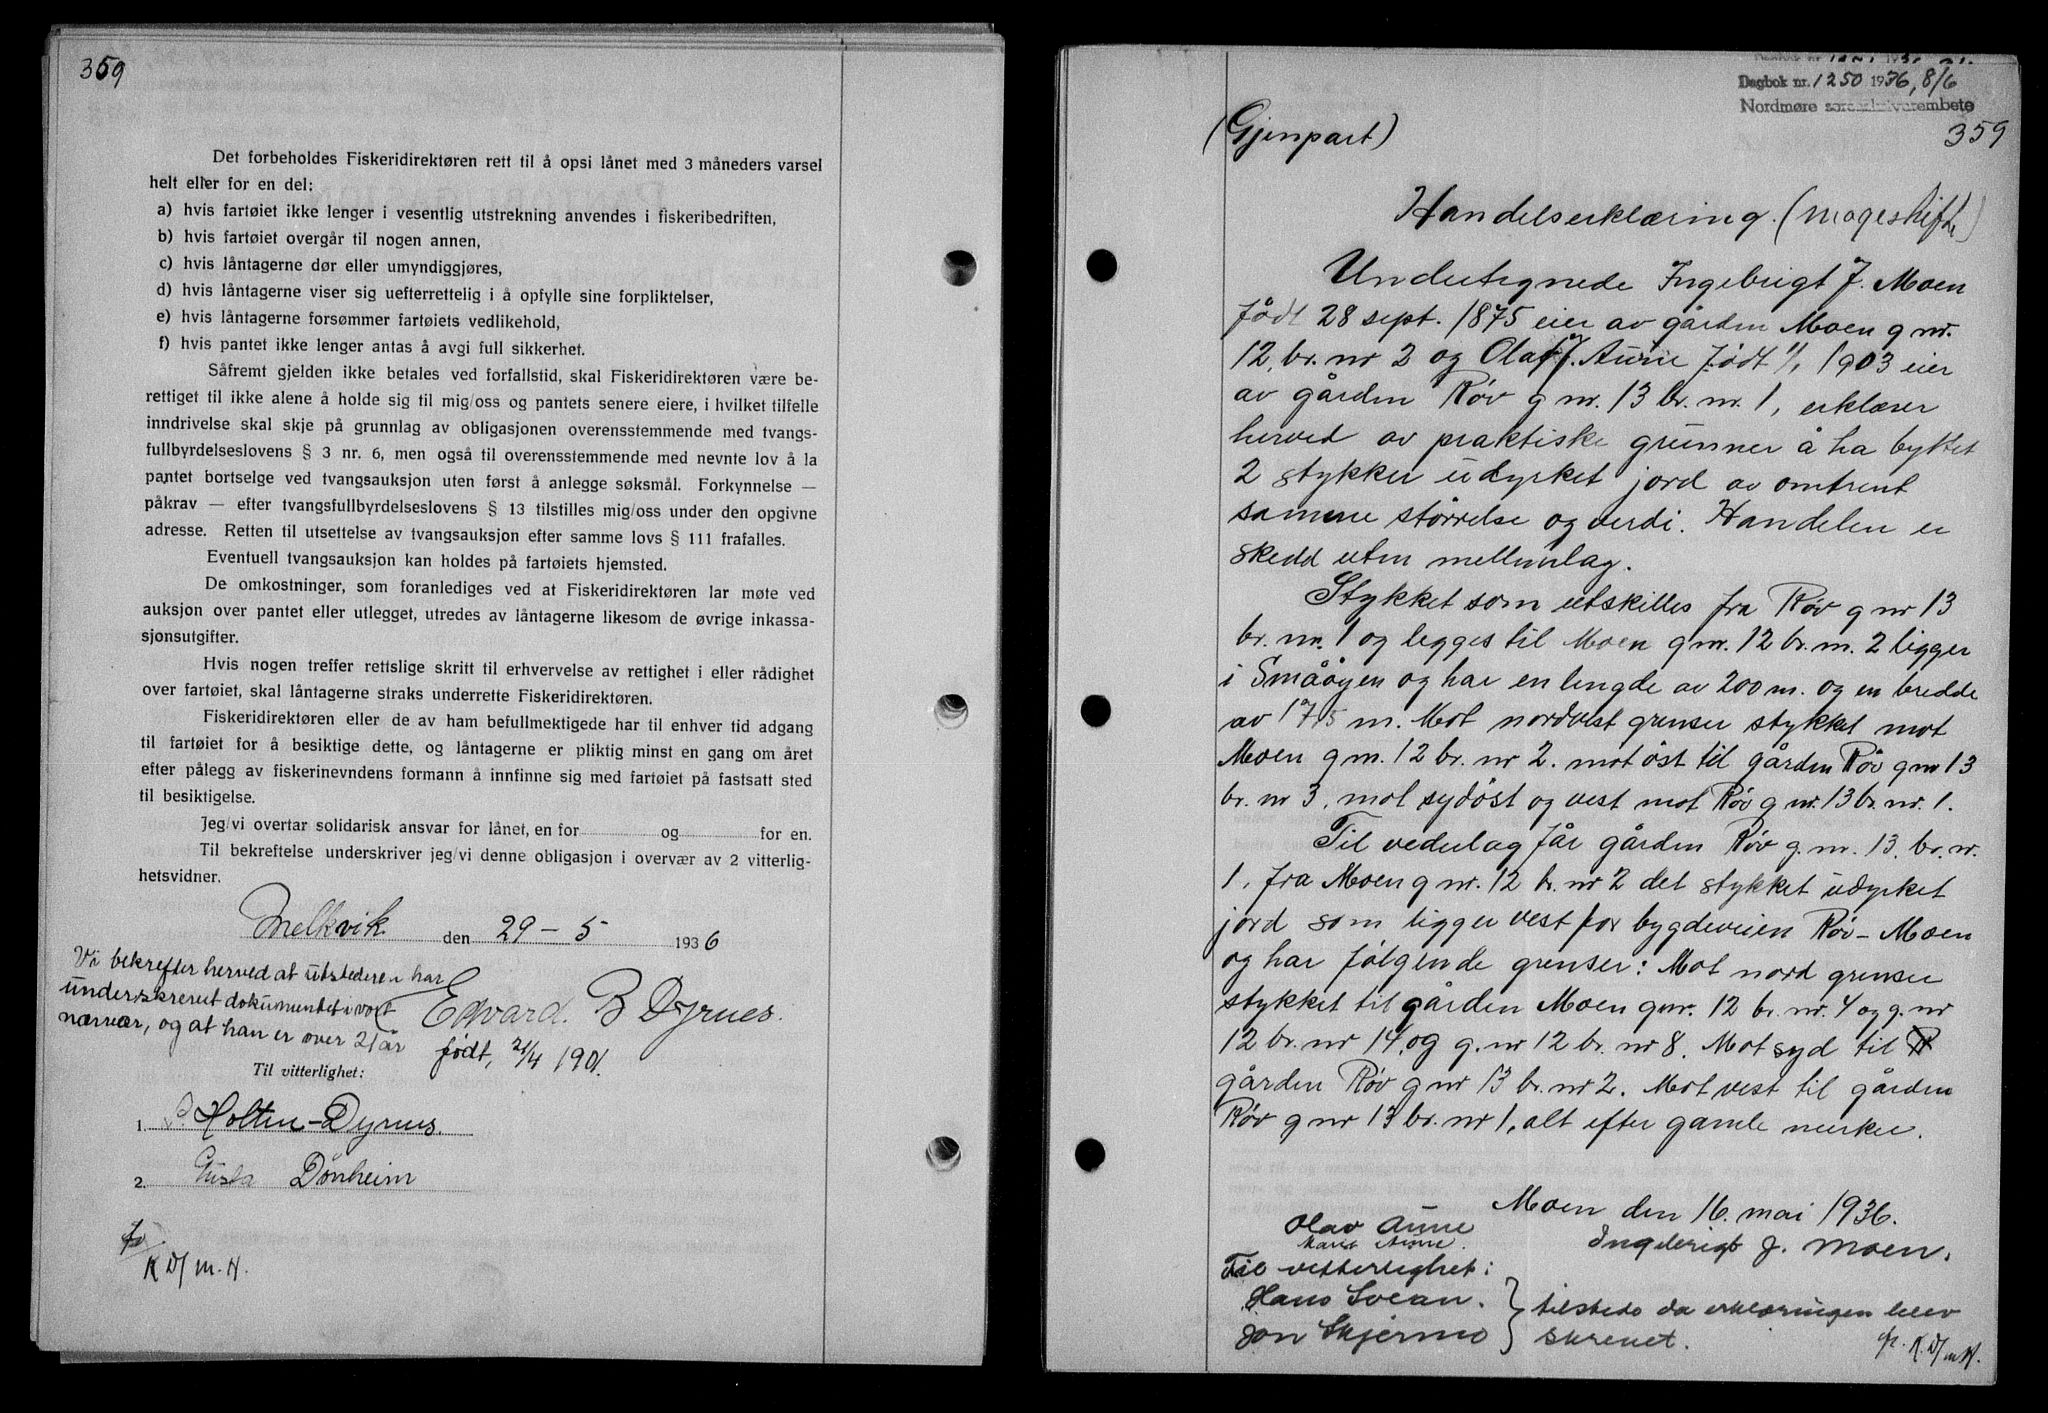 359
Det forbeholdes Fiskeridirektøren rett til å opsi lånet med 3 måneders varsel
helt eller for en del:
a) hvis fartøiet ikke lenger i vesentlig utstrekning anvendes i fiskeribedriften,
b) hvis fartøiet overgår til nogen annen,
c) hvis låntagerne dør eller umyndiggjøres,
d) hvis låntagerne viser sig uefterrettelig i å opfylle sine forpliktelser,
e) hvis låntagerne forsømmer fartøiets vedlikehold,
f) hvis pantet ikke lenger antas å avgi full sikkerhet.
Såfremt gjelden ikke betales ved forfallstid, skal Fiskeridirektøren være be-
rettiget til ikke alene å holde sig til mig/oss og pantets senere eiere, i hvilket tilfelle
inndrivelse skal skje på grunnlag av obligasjonen overensstemmende med tvangs-
fullbyrdelseslovens § 3 nr. 6, men også til overensstemmende med nevnte lov å la
pantet bortselge ved tvangsauksjon uten først å anlegge søksmål. Forkynnelse —
påkrav — efter tvangsfullbyrdelseslovens § 13 tilstilles mig/oss under den opgivne
adresse. Retten til utsettelse av tvangsauksjon efter samme lovs § 111 frafalles.
Eventuell tvangsauksjon kan holdes på fartøiets hjemsted.
De omkostninger, som foranlediges ved at Fiskeridirektøren lar møte ved
auksjon over pantet eller utlegget, utredes av låntagerne likesom de øvrige inkassa-
sjonsutgifter.
Hvis nogen treffer rettslige skritt til erhvervelse av rettighet i eller rådighet
over fartøiet, skal låntagerne straks underrette Fiskeridirektøren.
Fiskeridirektøren eller de av ham befullmektigede har til enhver tid adgang
til fartøiet for å besiktige dette, og låntagerne er pliktig minst en gang om året
efter pålegg av fiskerinevndens formann å innfinne sig med fartøiet på fastsatt sted
til besiktigelse.
Jeg/vi overtar solidarisk ansvar for lånet, en for og for en.
Til bekreftelse underskriver jeg/vi denne obligasjon i overvær av 2 vitterlig-
hetsvidner.
Melkvik den 29 - 5 1936
Vi bekrefter herved at utstederen har
underskrevet dokumentet i vort
nærvær, og at han er over 21 år
Edvard B Dyrnes.
født, 21/4 1901.
Til vitterlighet:
1. Holten-Dyrnes.
2. Dønheim
K D/ m. H.
Dagbok nr. 1250 1936, 8/6
Nordmøre sorenskriverembete
359
(Gjenpart)
Handelserklæring. (mageskifte)
Undertegnede Ingebrigt J. Moen
født 28 sept. 1875 eier av gården Moen g nr.
12, br. nr 2 og Olaf J. Aune født 1/1 1903 eier
av gården Røv g nr. 13 br. nr. 1, erklærer
herved av praktiske grunner å ha byttet
2 stykker udyrket jord av omtrent
samme størrelse og verdi. Handelen er
skedd uten mellemlag.
Stykket som utskilles fra Røv g nr 13
br. nr. 1 og legges til Moen g nr. 12 br. nr. 2 ligger
i Småøyen og har en lengde av 200 m. og en bredde
av 17,5 m. Mot nordvest grenser stykket mot
Moen g nr. 12 br. nr 2. mot øst til gården Røv g nr 13
br. nr 3, mot sydøst og vest mot Røv g nr. 13 br. nr. 1.
Til vederlag får gården Røv g. nr. 13. br. nr.
1, fra Moen g nr. 12 br. nr 2 det stykket udyrket
jord som ligger vest for bygdeveien Røv - Moen
og har følgende grenser: Mot nord grenser
stykket til gården Moen g nr. 12 br. nr. 4 og g. nr
12 br. nr 14, og g. nr 12 br. nr 8. Mot syd til
gården Røv g nr 13 br. nr 2. Mot vest til gården
Røv g nr 13 br. nr 1, alt efter gamle merker.
Moen den 16. mai 1936.
Olav Aune
Marit Aune.
Ingebrigt J. Moen.
Til vitterlighet:
Hans Svean.
Jon Skjermo
tilstede da erklæringen blev
skrevet.
K. D/ m H.